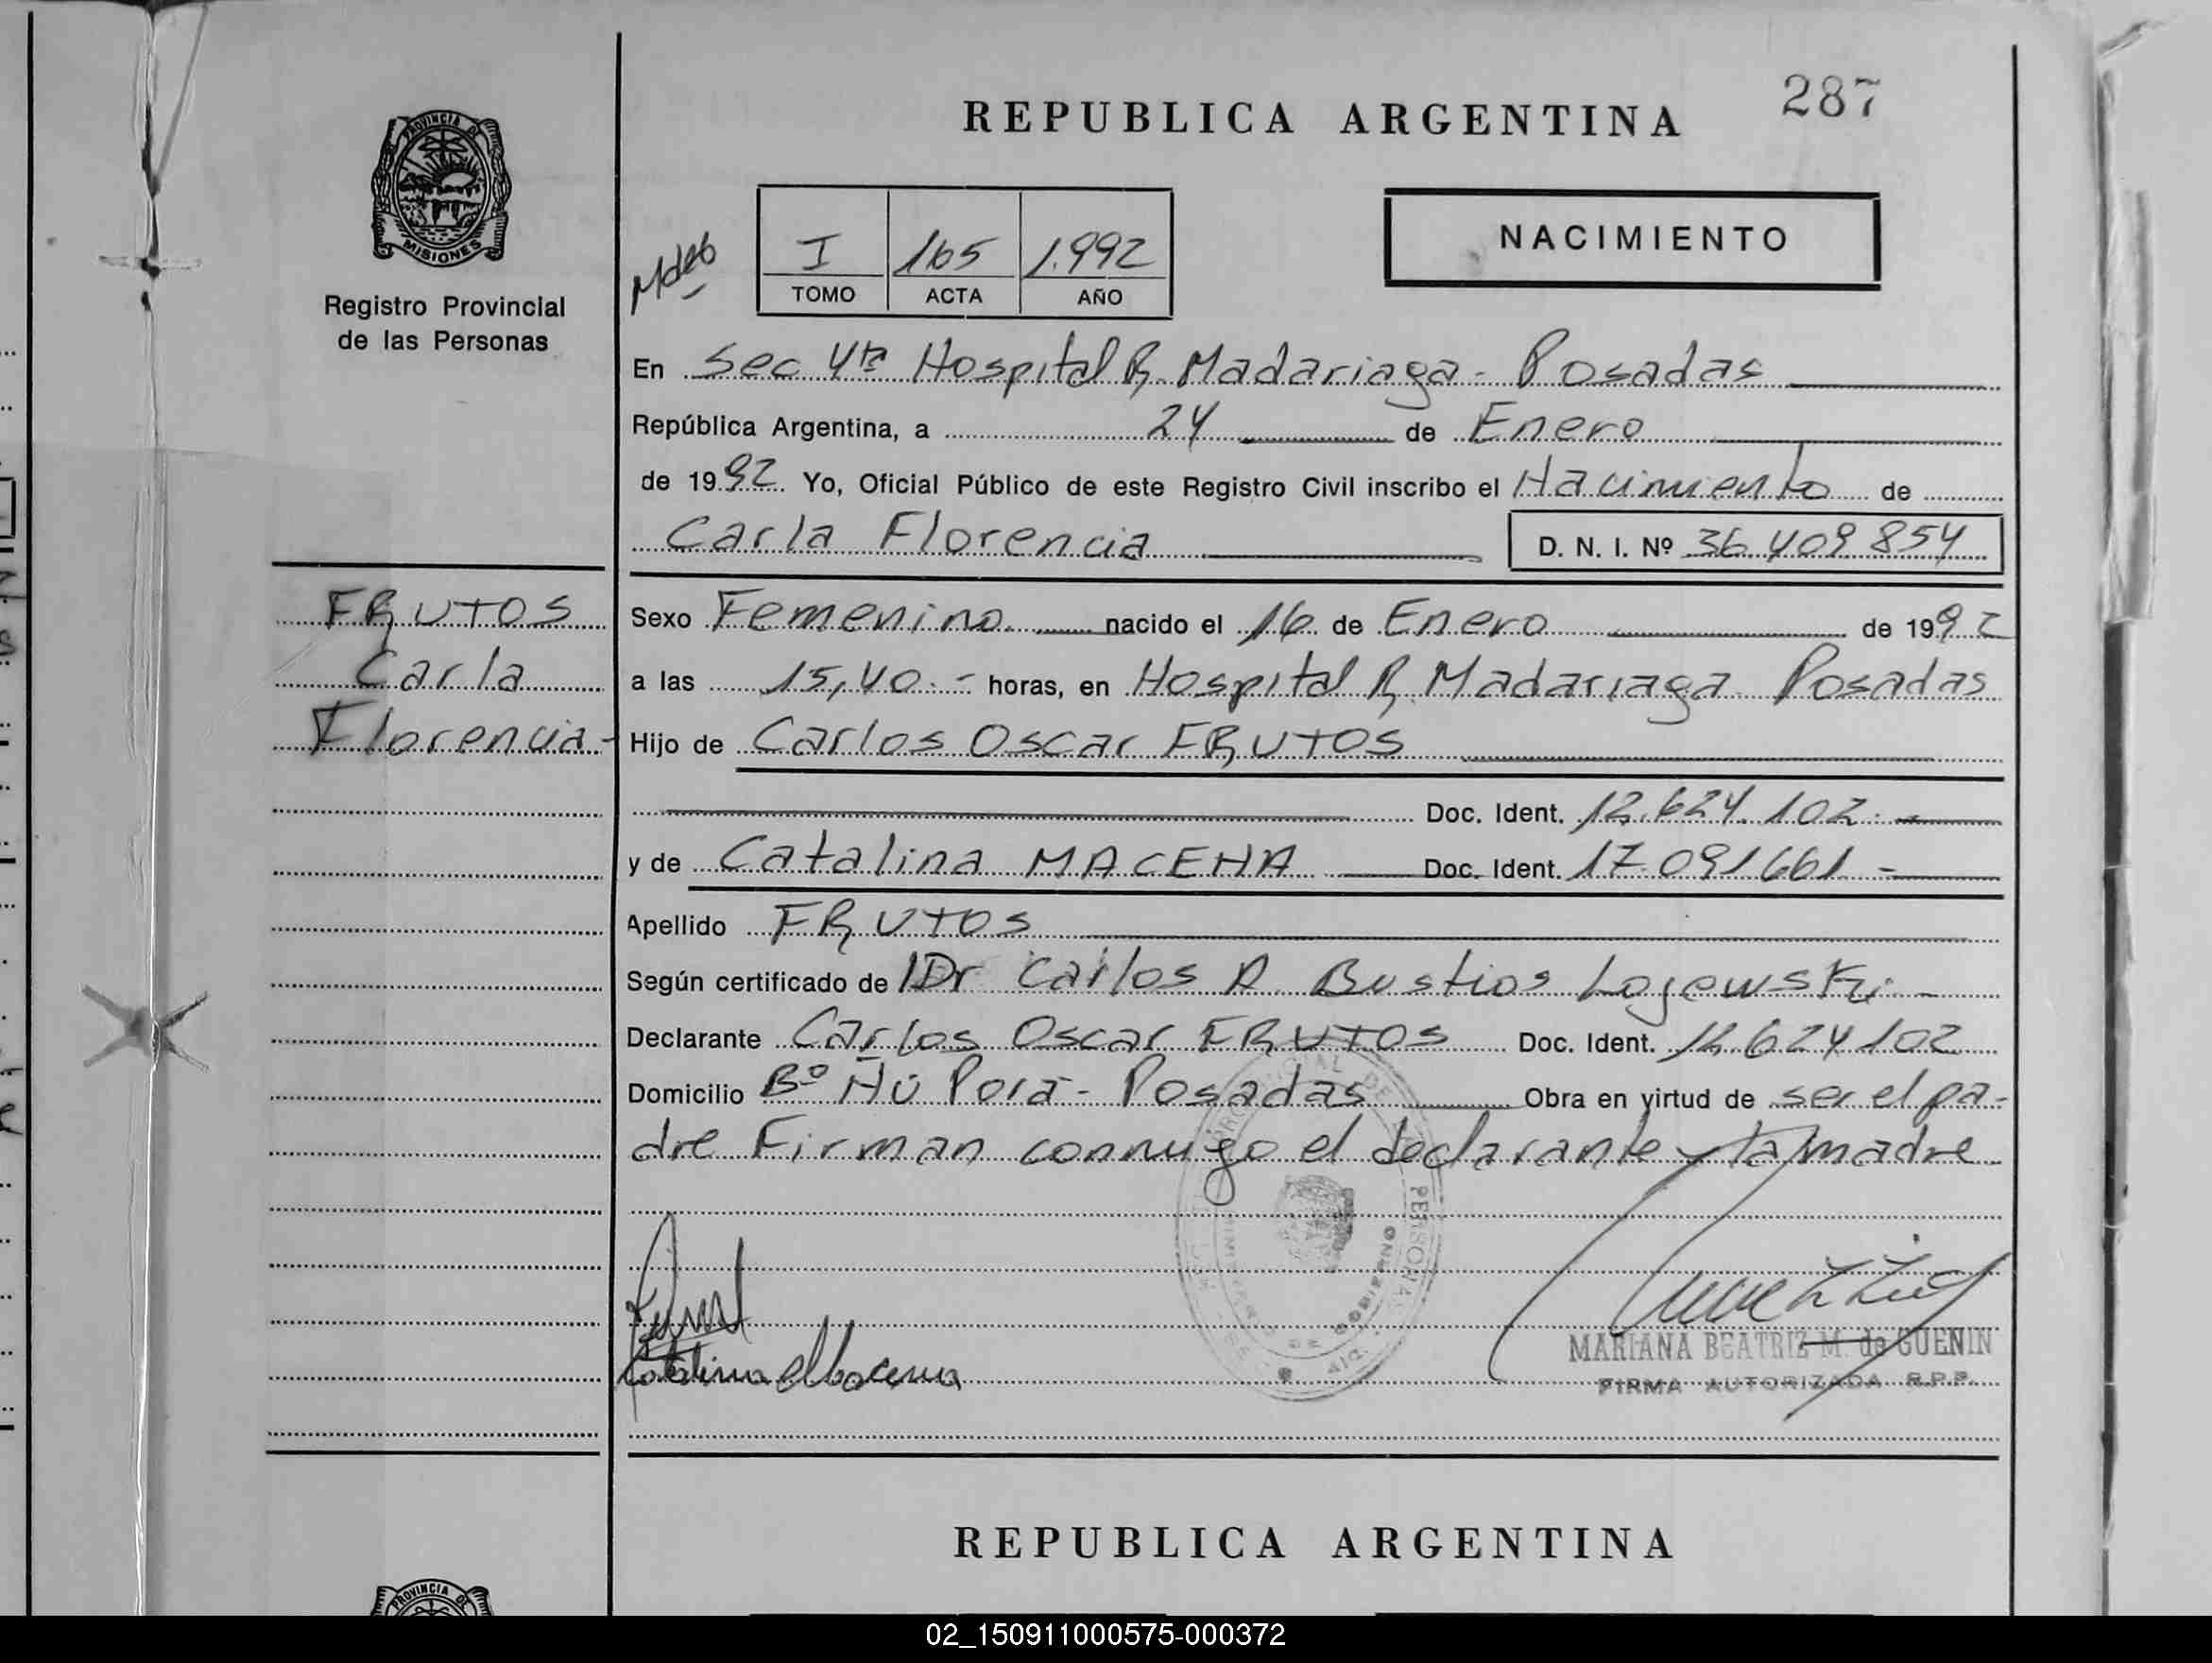 287
REPUBLICA ARGENTINA
PROVINCIA DE
MISIONES
Registro Provincial
de las Personas
NACIMIENTO
I 165 1.992
TOMO ACTA AÑO
En Sec 4ta Hospital R. Madariaga - Posadas
República Argentina, a 24 de Enero
de 1992. Yo, Oficial Público de este Registro Civil inscribo el Nacimiento de
Carla Florencia D. N. I. Nº 36.409.854
FRUTOS
Carla
Florencia-
Sexo Femenino nacido el 16 de Enero de 1992
a las 15,40.- horas, en Hospital R. Madariaga Posadas
Hijo de Carlos Oscar FRUTOS
Doc. Ident. 12.624.102.-
y de Catalina MACENA Doc. Ident. 17.091661.-
Apellido FRUTOS
Según certificado de Dr Carlos A. Bustios Lojewski.-
Declarante Carlos Oscar FRUTOS Doc. Ident. 12.624102
Domicilio Bº Ñu Porá - Posadas Obra en virtud de ser el pa-
dre Firman conmigo el declarante y la madre
Catalina Macena
MARIANA BEATRIZ M. de GUENIN
FIRMA AUTORIZADA R.P.P.
REPUBLICA ARGENTINA
PROVINCIA DE
02_150911000575-000372